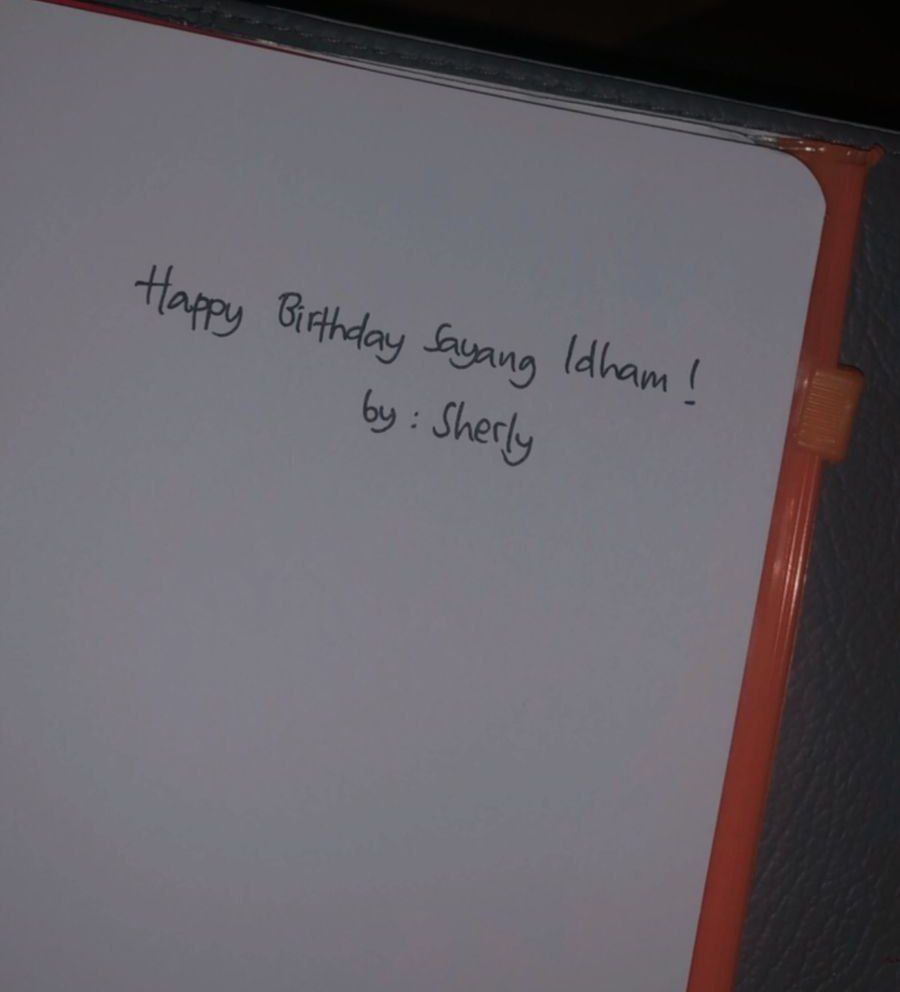 Happy Birthday Sayang Idham!
by : Sherly